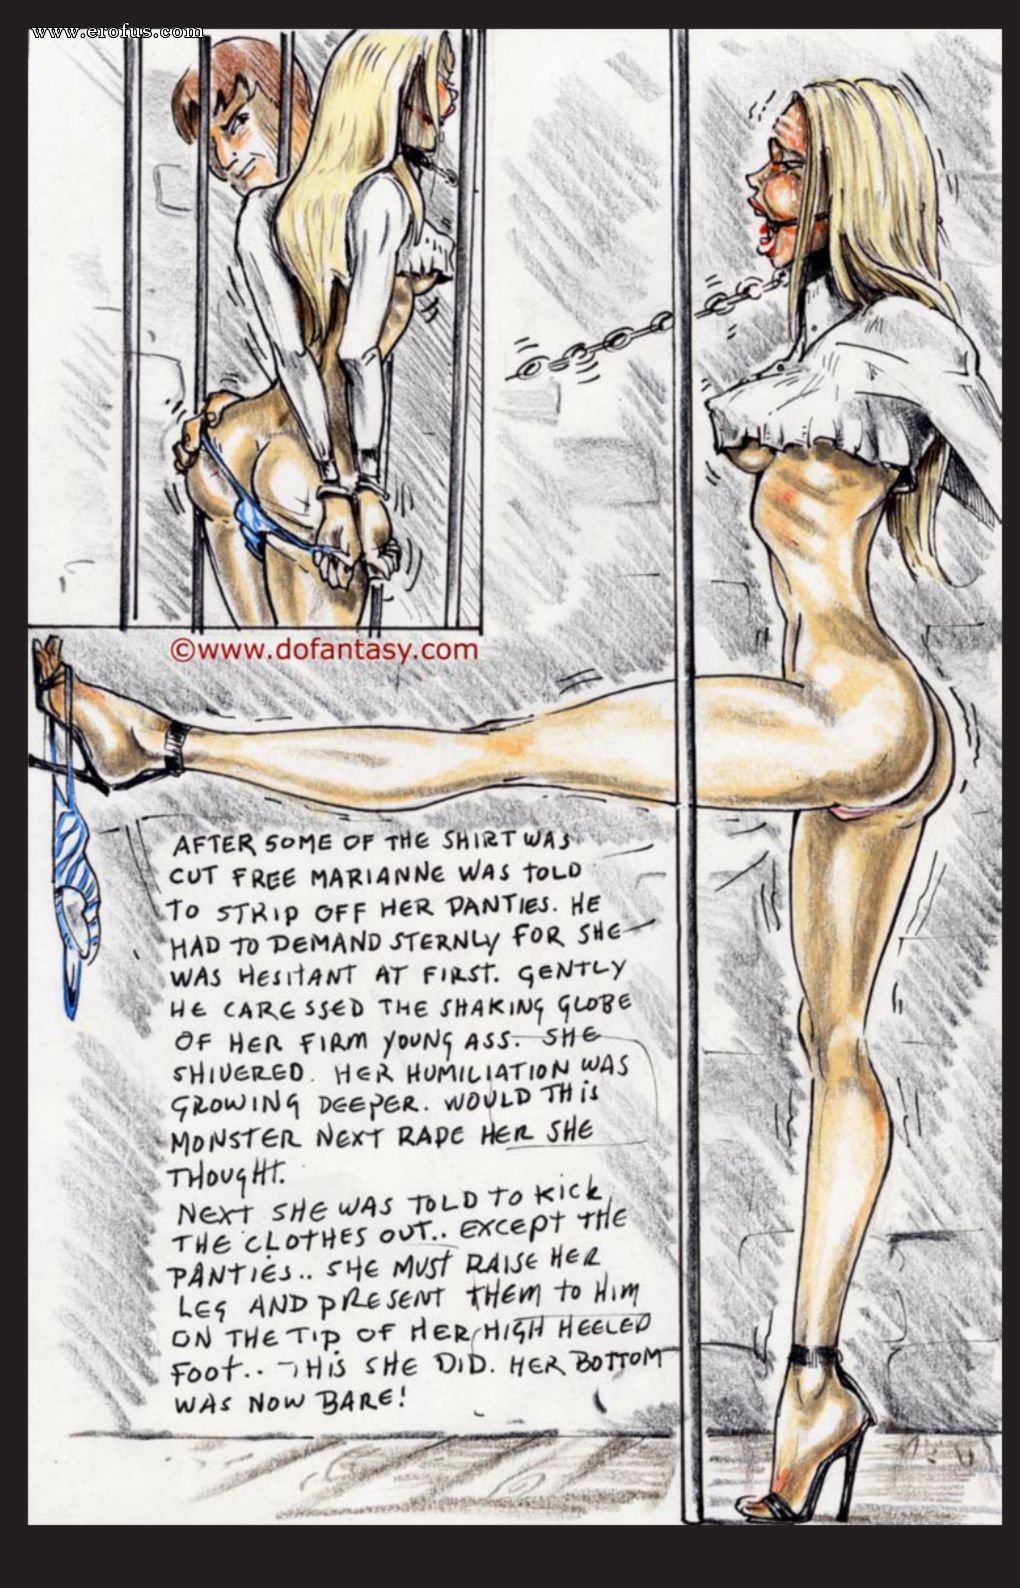 www.erofus.com
©www.dofantasy.com
AFTER SOME OF THE SHIRT WAS
CUT FREE MARIANNE WAS TOLD
TO STRIP OFF HER PANTIES. HE
HAD TO DEMAND STERNLY FOR SHE
WAS HESITANT AT FIRST. GENTLY
HE CARESSED THE SHAKING GLOBE
OF HER FIRM YOUNG ASS. SHE
SHIVERED. HER HUMILIATION WAS
GROWING DEEPER. WOULD THIS
MONSTER NEXT RAPE HER SHE
THOUGHT.
NEXT SHE WAS TOLD TO KICK
THE CLOTHES OUT.. EXCEPT THE
PANTIES.. SHE MUST RAISE HER
LEG AND PRESENT THEM TO HIM
ON THE TIP OF HER HIGH HEELED
FOOT.. THIS SHE DID. HER BOTTOM
WAS NOW BARE!